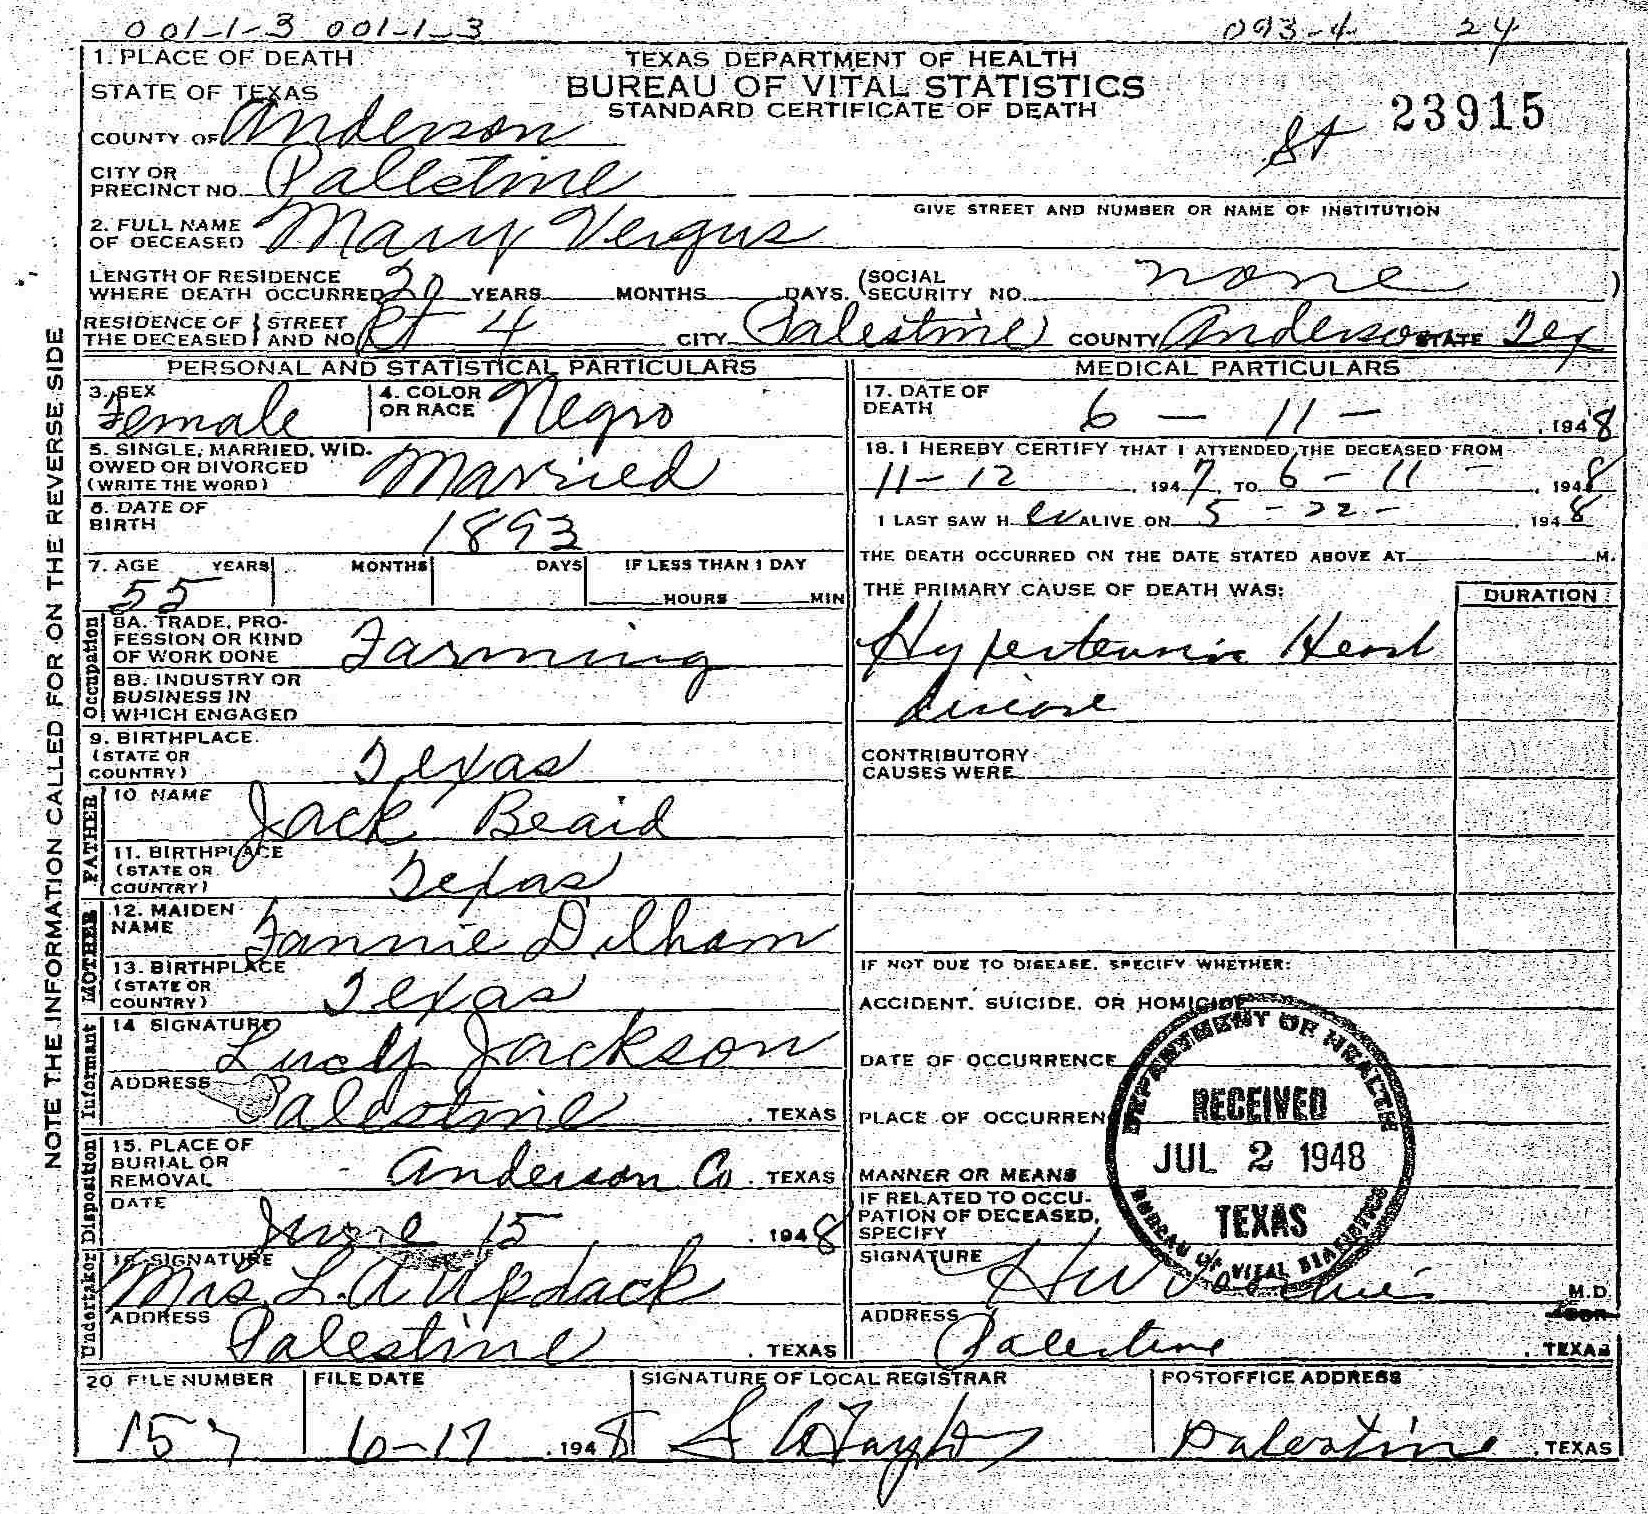 001-1-3 001-1-3 093-4 24
1. PLACE OF DEATH
TEXAS DEPARTMENT OF HEALTH
BUREAU OF VITAL STATISTICS
STANDARD CERTIFICATE OF DEATH
23915
STATE OF TEXAS
COUNTY OF Anderson
CITY OR PRECINCT NO. Pallestine
GIVE STREET AND NUMBER OR NAME OF INSTITUTION
2. FULL NAME OF DECEASED Mary Vergus
LENGTH OF RESIDENCE WHERE DEATH OCCURRED 20 YEARS MONTHS DAYS. (SOCIAL SECURITY NO. none )
RESIDENCE OF THE DECEASED STREET AND NO. Rt 4 CITY Palestine COUNTY Anderson STATE Tex
NOTE THE INFORMATION CALLED FOR ON THE REVERSE SIDE
PERSONAL AND STATISTICAL PARTICULARS
3. SEX Female
4. COLOR OR RACE Negro
5. SINGLE, MARRIED, WIDOWED OR DIVORCED (WRITE THE WORD) Married
6. DATE OF BIRTH 1893
7. AGE YEARS MONTHS DAYS IF LESS THAN 1 DAY
55 HOURS MIN
Occupation
8A. TRADE, PROFESSION OR KIND OF WORK DONE Farming
8B. INDUSTRY OR BUSINESS IN WHICH ENGAGED
9. BIRTHPLACE (STATE OR COUNTRY) Texas
FATHER
10 NAME Jack Beaid
11. BIRTHPLACE (STATE OR COUNTRY) Texas
MOTHER
12. MAIDEN NAME Fannie Dilham
13. BIRTHPLACE (STATE OR COUNTRY) Texas
Informant
14 SIGNATURE Lucly Jackson
ADDRESS Palestine . TEXAS
Disposition
15. PLACE OF BURIAL OR REMOVAL Anderson Co. TEXAS
DATE June 15 . 1948
Undertaker
16. SIGNATURE Mrs L. A Updack
ADDRESS Palestine . TEXAS
MEDICAL PARTICULARS
17. DATE OF DEATH 6 - 11 - , 1948
18. I HEREBY CERTIFY THAT I ATTENDED THE DECEASED FROM
11-12 , 1947, TO 6 - 11 - , 1948
I LAST SAW H er ALIVE ON 5 - 22 - , 1948
THE DEATH OCCURRED ON THE DATE STATED ABOVE AT M.
THE PRIMARY CAUSE OF DEATH WAS: DURATION
Hypertensive Heart
disease
CONTRIBUTORY CAUSES WERE
IF NOT DUE TO DISEASE, SPECIFY WHETHER:
ACCIDENT, SUICIDE, OR HOMICIDE
DATE OF OCCURRENCE
PLACE OF OCCURREN
MANNER OR MEANS
IF RELATED TO OCCUPATION OF DECEASED, SPECIFY
DEPARTMENT OF HEALTH
RECEIVED
JUL 2 1948
TEXAS
BUREAU OF VITAL STATISTICS
SIGNATURE M.D.
ADDRESS Palestine . TEXAS
20 FILE NUMBER FILE DATE SIGNATURE OF LOCAL REGISTRAR POSTOFFICE ADDRESS
157 6-17 , 1948 Palestine , TEXAS